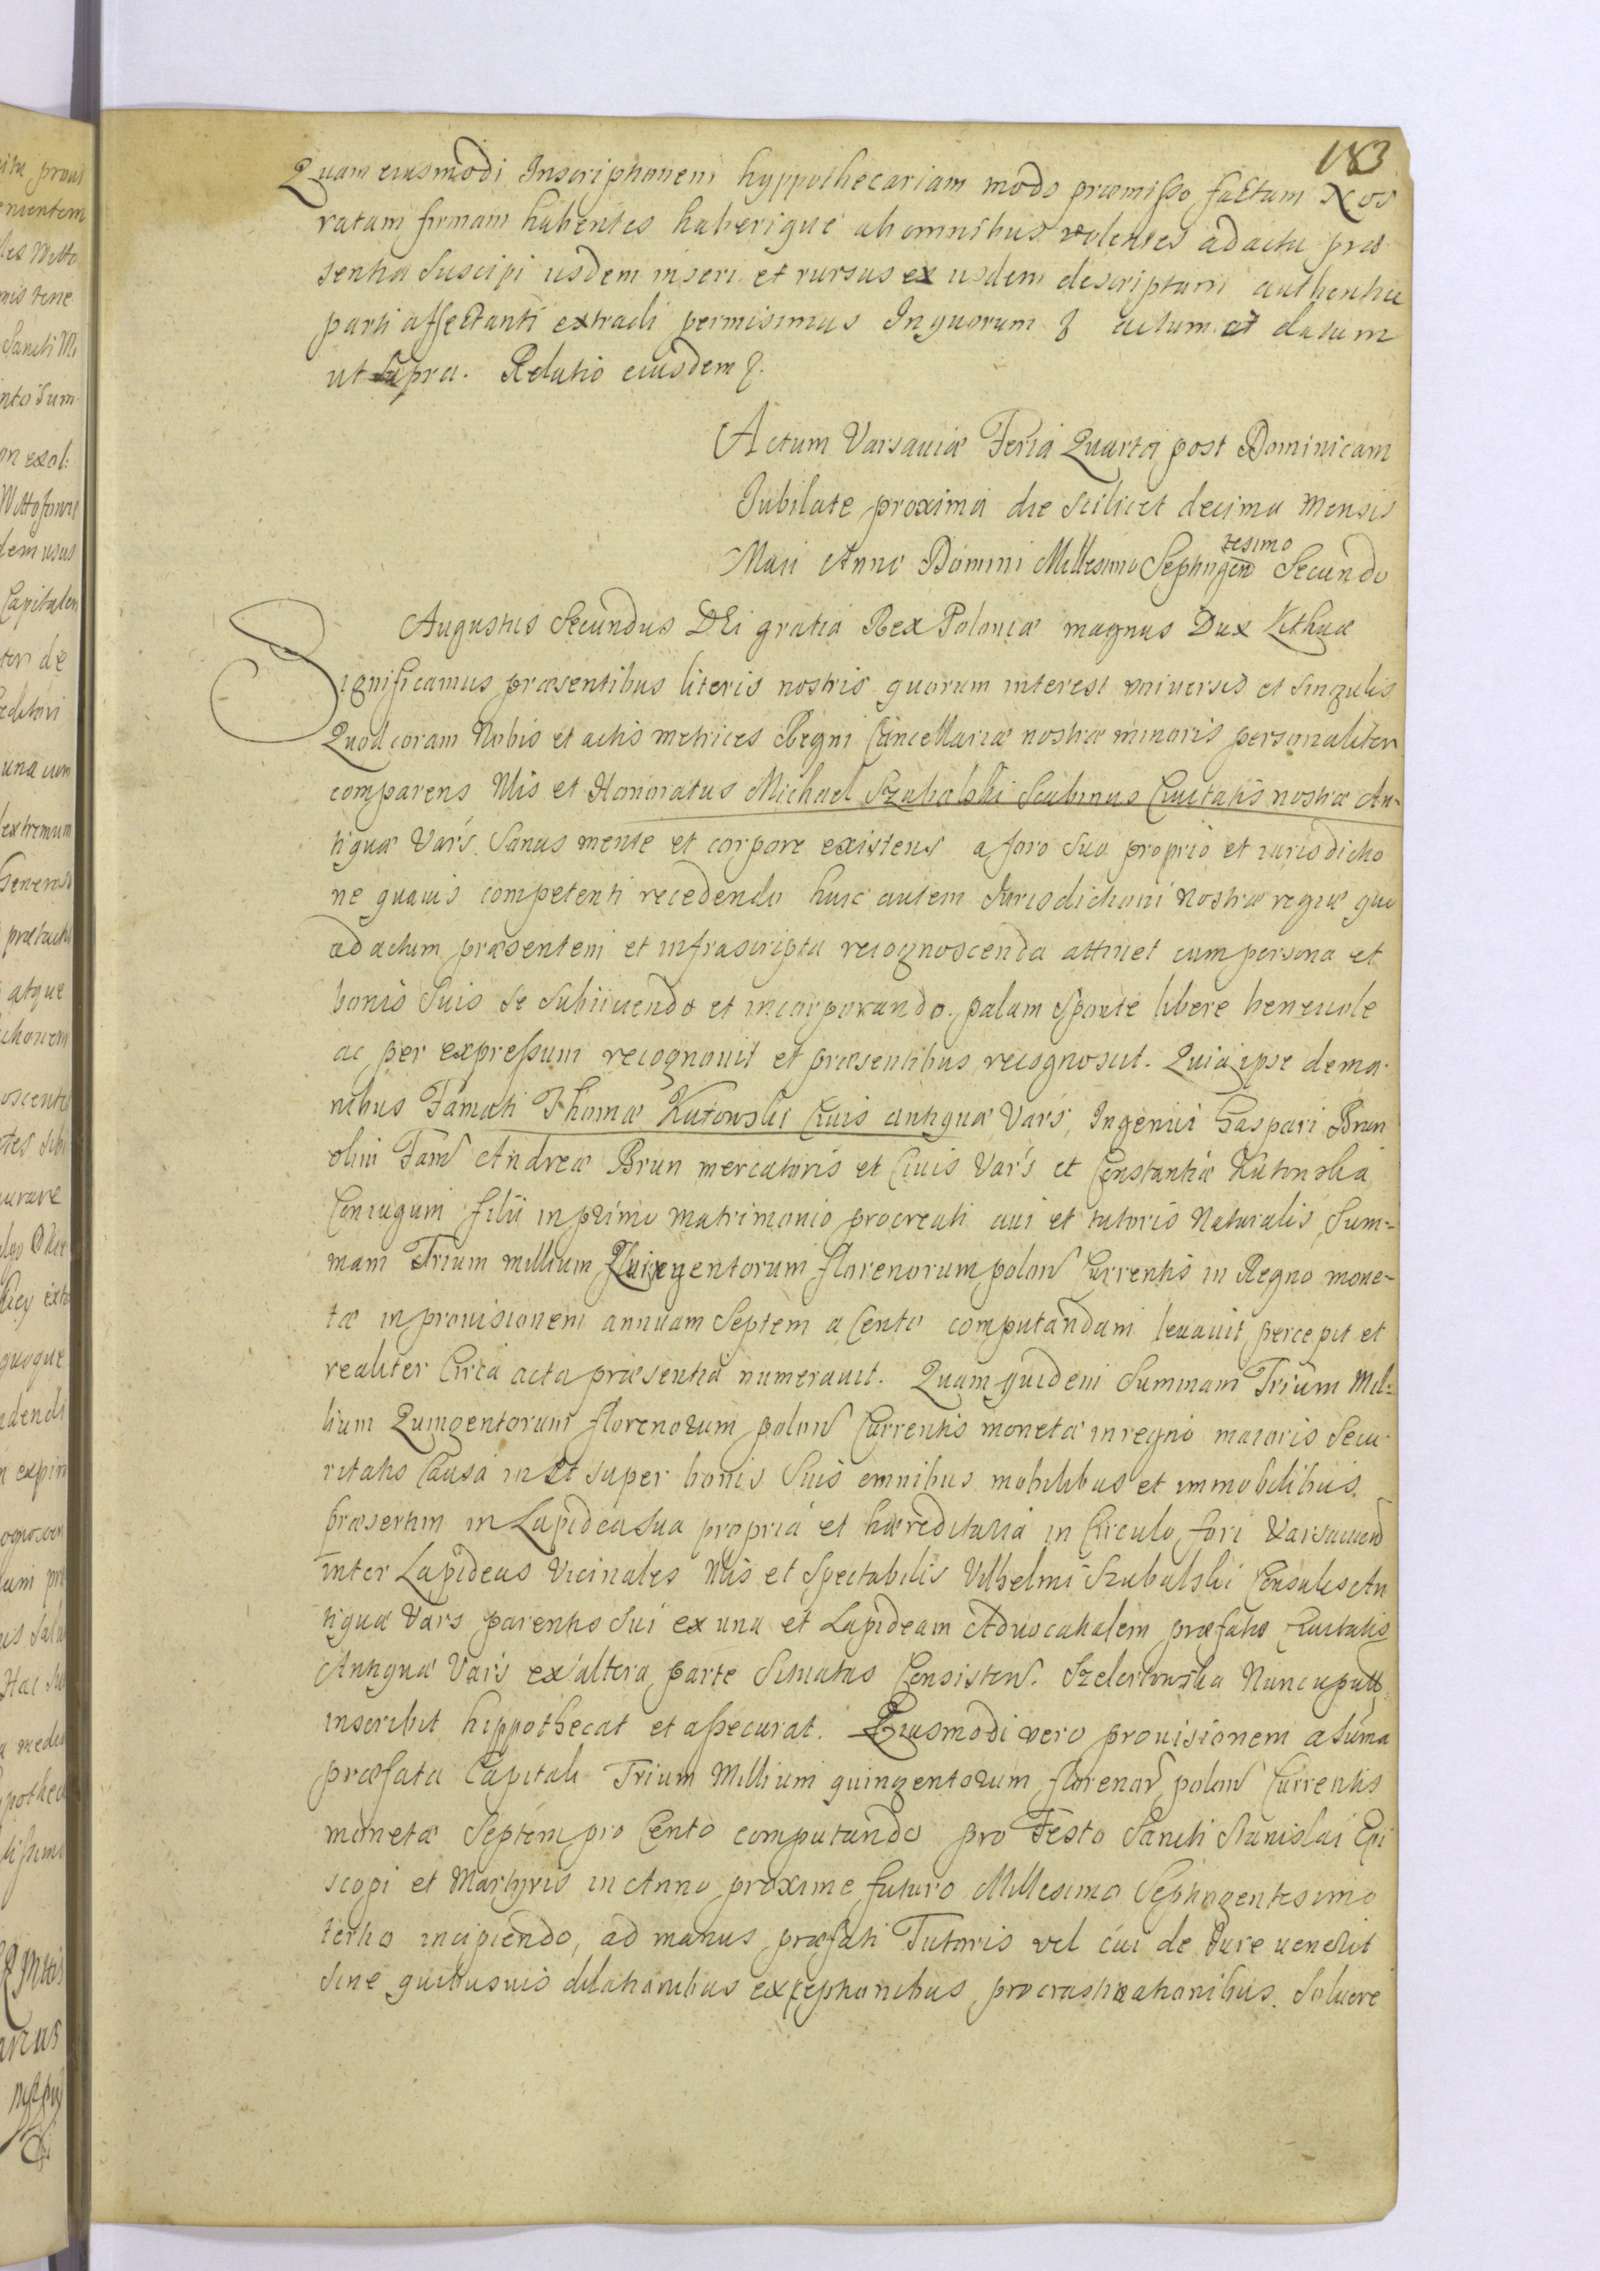 183
Quam eiusmodi Inscriptionem hyppothecariam modo præmisso factam Nos
ratam firmam habentes haberique ab omnibus volentes ad acta præ
sentia suscipi iisdem inseri et rursus ex iisdem descriptam authentice
parti affectanti extradi permisimus In quorum & actum et datum
ut supra. Relatio eiusdem &.
Actum Varsaviæ Feria Quarta post Dominicam
Jubilate proxima die scilicet decima Mensis
Maii Anno Domini Millesimo Septingen tesimo Secundo
Augustus Secundus DEi gratia Rex Poloniæ magnus Dux Lithuæ
Significamus præsentibus literis nostris quorum interest universis et singulis
Quod coram Nobis et actis metrices Regni Cancellariæ nostræ minoris personaliter
comparens Nlis et Honoratus Michael Szubalski Scabinus Civitatis nostræ An-
tiquæ Vars. Sanus mente et corpore existens a foro suo proprio et iurisdictio
ne quavis competenti recedendo huic autem Jurisdictioni nostræ regiæ quo
ad actum præsentem et infrascripta recognoscenda attinet cum persona et
bonis suis se subiiciendo et incorporando. palam sponte libere benevole
ac per expressum recognovit et præsentibus recognoscit. Quia ipse de ma
nibus Famati Thomæ Kutowski Civis antiquæ Vars, Ingenui Gaspari Brun
olim Fam Andreæ Brun mercatoris et Civis Vars et Constantiæ Kutowska
Coniugum filii in primo matrimonio procreati avi et tutoris Naturalis, Sum-
mam Trium millium Quingentorum florenorum polon Currentis in Regno mone-
tæ in provisionem annuam Septem a Cento computandam levavit percepit et
realiter Circa acta præsentia numeravit. Quam quidem Summam Trium Mil-
lium Quingentorum florenorum polon Currentis monetæ in regno maioris Secu
ritatis Causa in et super bonis suis omnibus mobilibus et immobilibus.
præsertim in Lapidea sua propria et hæreditaria in Circulo fori Varsavien
inter Lapideas Vicinales Nlis et Spectabilis Vilhelmi Szubalski Consulis An
tiquæ Vars parentis sui ex una et Lapideam Advocatialem præfatæ Civitatis
Antiquæ Vars ex altera parte Situatas Consisten. Nuncupatt
inscribit hippothecat et assecurat. Eiusmodi vero provisionem a suma
præfata Capitali Trium Millium quingentorum florenor polon Currentis
monetæ Septem pro Cento computando pro Festo Sancti Stanislai Epi
scopi et Martyris in Anno proxime futuro Millesimo Septingentesimo
tertio incipiendo, ad manus præfati Tutoris vel cui de Jure venerit
sine quibusvis dilationibus exceptionibus procrastinationibus. Solvere